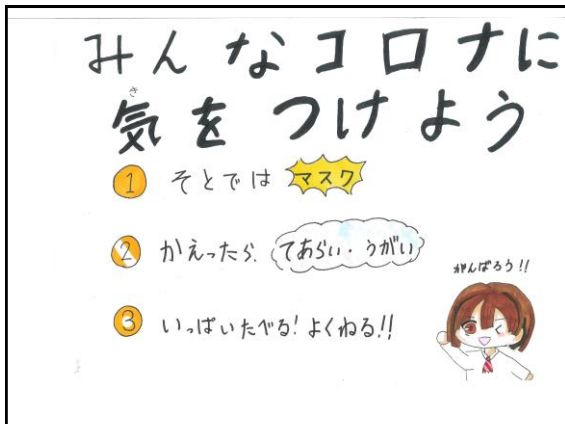 みんなコロナに
き
気をつけよう
1 そとでは マスク
2 かえったら てあらい・うがい
3 いっぱいたべる!よくねる!!
がんばろう!!